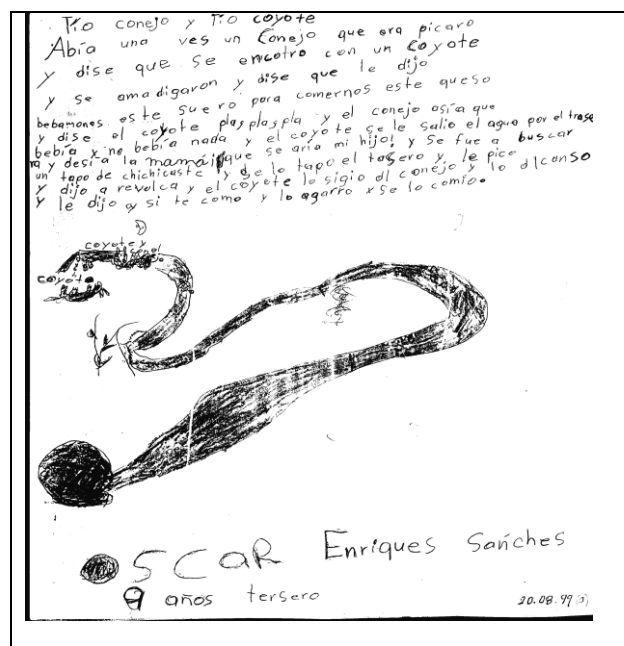 Tío conejo y Tío coyote
Abía una ves un Conejo que era picaro
y dise que se encotro con un Coyote
y se amadigaron y dise que le dijo
bebamones este suero para comernos este queso
y dise el coyote plasplaspla y el conejo asía que
bebía y no bebía nada y el coyote se le salio el agua por el trase
ro y desía a la mamá que se aria mi hijo! y se fue a buscar
un tapo de chichicaste y se lo tapo el tasero y le pico
y dijo a revolca y el coyote lo sigio al conejo y lo alcanso
y le dijo oy si te como y lo agarro y se lo comio.
coyote y
coyote
OSCAR Enriques Sanches
9 años tersero
20.08.99